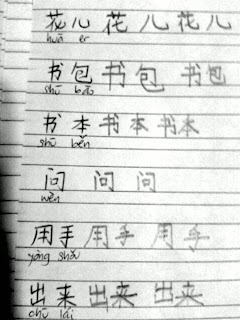 花儿 花儿 花儿
huā er
书包 书包 书包
shū bāo
书本 书本 书本
shū běn
问 问 问
wèn
用手 用手 用手
yòng shǒu
出来 出来 出来
chū lái